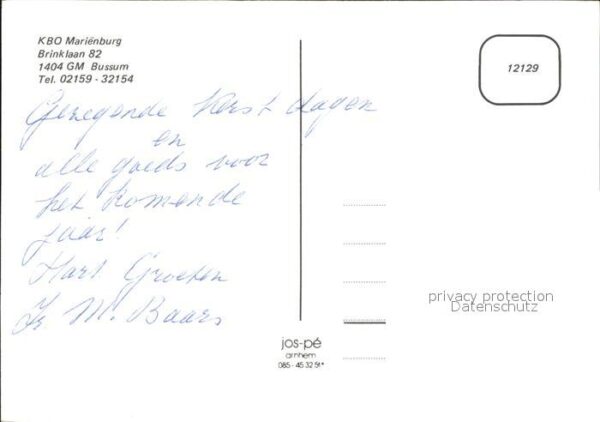 KBO Mariënburg
Brinklaan 82
1404 GM Bussum
Tel. 02159 - 32154
12129
Gezegende Kerst dagen
en
alle goeds voor
het komende
jaar!
Hart. Groeten
M. Baars
privacy protection
Datenschutz
jos-pé
arnhem
085 - 45 32 91*